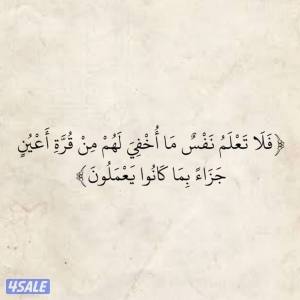 ﴿فَلَا تَعْلَمُ نَفْسٌ مَا أُخْفِيَ لَهُمْ مِنْ قُرَّةِ أَعْيُنٍ
جَزَاءً بِمَا كَانُوا يَعْمَلُونَ﴾
4SALE